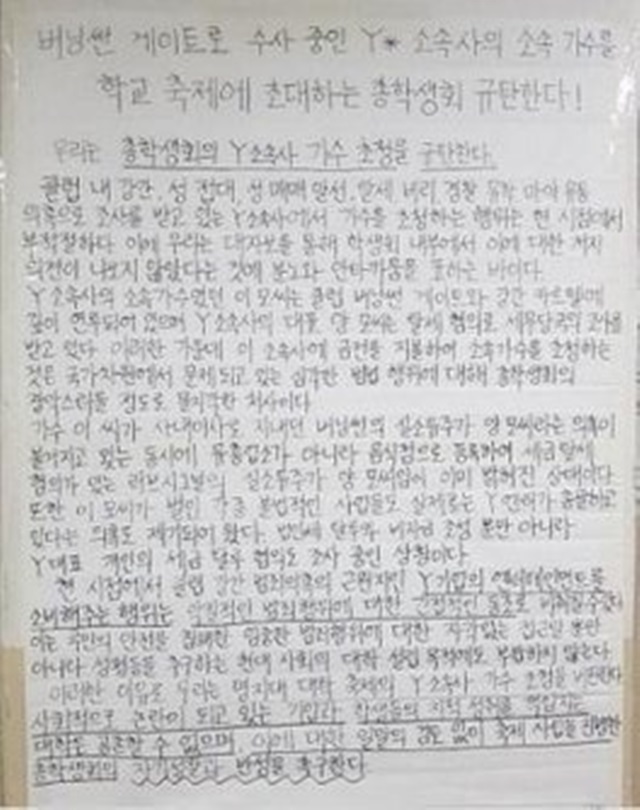 버닝썬 게이트로 수사 중인 Y* 소속사의 소속 가수를
학교 축제에 초대하는 총학생회 규탄한다!
우리는 총학생회의 Y소속사 가수 초청을 규탄한다.
클럽 내 강간, 성 접대, 성매매 알선, 탈세 비리 경찰 유착 마약 유통
의혹으로 조사를 받고 있는 Y소속사에서 가수를 초청하는 행위는 현 시점에서
부적절하다 이에 우리는 대자보를 통해 학생회 내부에서 이에 대한 저지
의견이 나오지 않았다는 것에 분노와 안타까움을 표하는 바이다.
Y소속사의 소속가수였던 이 모씨는 클럽 버닝썬 게이트와 강간 카르텔에
깊이 연루되어 있으며 Y소속사의 대표 양 모씨는 탈세 혐의로 세무당국의 조사를
받고 있다 이러한 가운데 이 소속사에 금전을 지불하여 소속가수를 초청하는
것은 국가차원에서 문제되고 있는 심각한 범법 행위에 대해 총학생회의
경악스러울 정도로 몰지각한 처사이다
가수 이 씨가 사내이사로 지내던 버닝썬의 실소유주가 양 모씨라는 의혹이
불거지고 있는 동시에 유흥업소가 아니라 음식점으로 등록하여 세금 탈세
혐의가 있는 러브시그널의 실소유주가 양 모씨임이 이미 밝혀진 상태이다
또한 이 모씨가 벌인 각종 불법적인 사업들도 실제로는
있다는 의혹도 제기되어 왔다. 법인세 탈루와 비자금 조성 뿐만 아니라
Y대표 개인의 세금 탈루 혐의도 조사 중인 상황이다
현 시점에서 클럽 강간 범죄의혹의 근원지인 Y기업의 엔터테인먼트를
소비해주는 행위는 범죄행위에 대한 간접적인 동조로
이는 국민의 안전을 침해한 엄중한 범죄행위에 대한 지각없는 접근일 뿐만
아니라 성평등을 추구하는 현대 사회의 대학 설립 목적에도 부합하지 않는다
이러한 이유로 우리는 명지대 대학 축제의 Y소속사 가수 초청을 비판한다
사회적으로 논란이 되고 있는 기업과 학생들의 지적 성취를
대학은 공존할 수 없으며, 이에 대한 일말의 검토 없이 축제 사업을 진행한
총학생회의 반성을 촉구한다